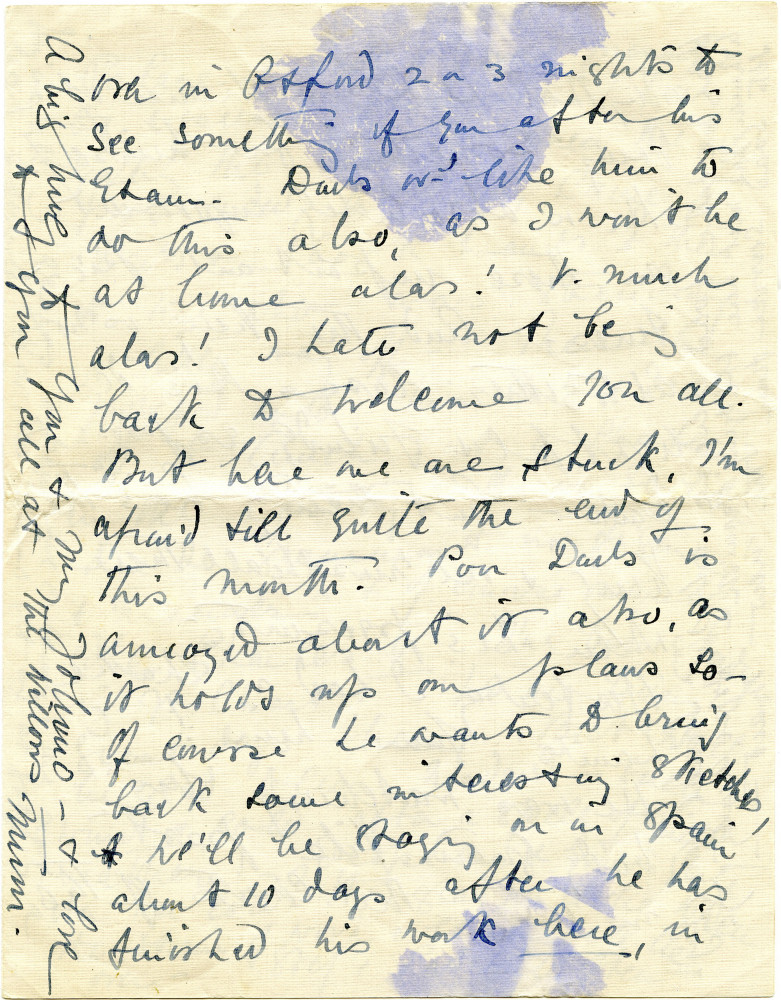 over in Oxford 2 or 3 nights to
see something of you after his
Exam. Dads wd like him to
do this also, as I won't be
at home alas! V. much
alas! I hate not being
back to welcome you all.
But here we are stuck, I'm
afraid till quite the end of
this month. Poor Dads is
annoyed about it also, as
it holds up our plans so—
Of course he wants to bring
back some interesting sketches,
& we'll be staying on in Spain
about 10 days after he has
finished his work here, in
A big hug to you & my Johnno — & love
to you all at the Willows. Mum.